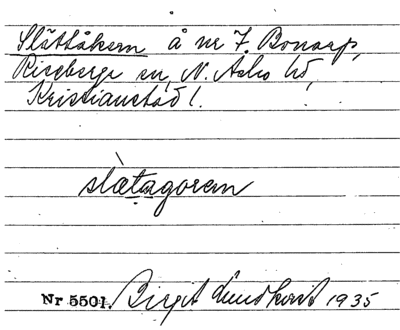 Slättåkern å nr 7. Bonarp,
Riseberga sn, N. Åsbo hd,
Kristianstad l.
slàtagoren
Nr 5501. Birgit Lundkvist 1935